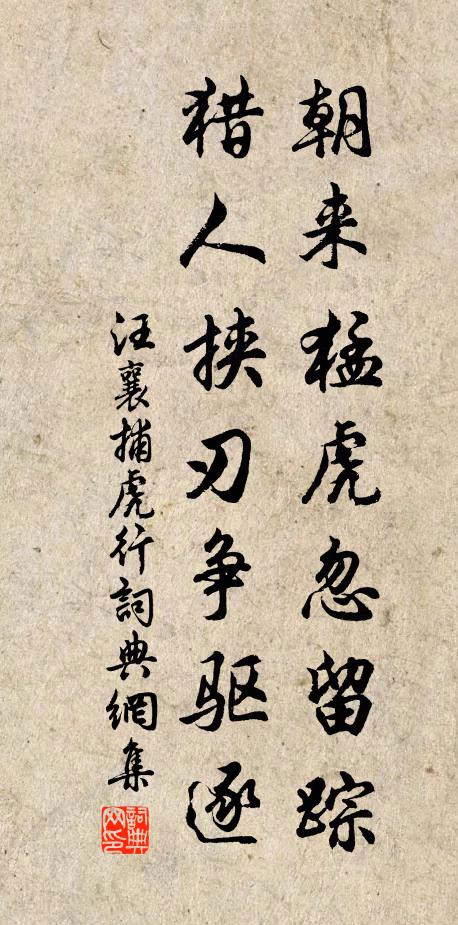 朝来猛虎忽留踪
猎人挟刃争驱逐
汪襄捕虎行詞典網集
詞典网印